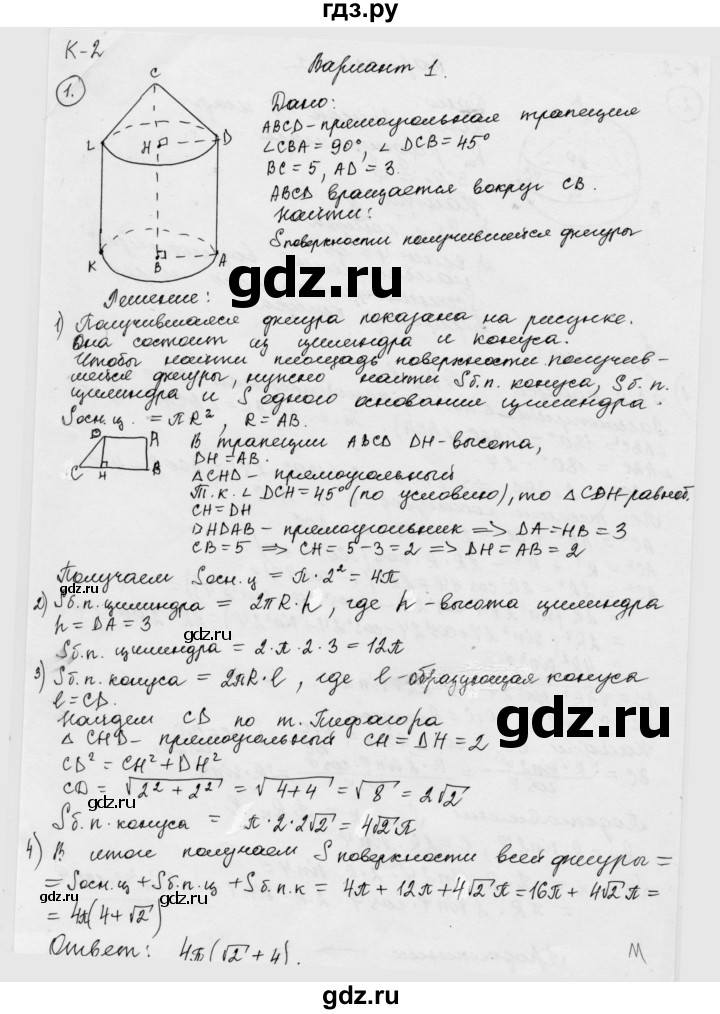 гдз.ру
К-2
Вариант 1.
1.
C
L
H
D
K
B
A
Дано:
ABCD – прямоугольная трапеция
∠CBA = 90°, ∠DCB = 45°
BC = 5, AD = 3.
ABCD вращается вокруг CB.
Найти:
Sповерхности получившейся фигуры
gdz.ru
Решение:
1) Получившаяся фигура показана на рисунке.
Она состоит из цилиндра и конуса.
Чтобы найти площадь поверхности получив-
шейся фигуры, нужно найти Sб.п. конуса, Sб.п.
цилиндра и S одного основания цилиндра.
Sосн.ц. = πR², R = AB.
D A
C H B
В трапеции ABCD DH – высота,
DH = AB.
△CHD – прямоугольный
Т.к. ∠DCH = 45° (по условию), то △CDH – равноб.
CH = DH
DHDAB – прямоугольник ⟹ DA = HB = 3
CB = 5 ⟹ CH = 5 – 3 = 2 ⟹ DH = AB = 2
Получаем Sосн.ц = π · 2² = 4π
gdz.ru
2) Sб.п. цилиндра = 2πR · h, где h – высота цилиндра
h = DA = 3
gdz.ru
Sб.п. цилиндра = 2 · π · 2 · 3 = 12π
3) Sб.п. конуса = 2πR · l, где l – образующая конуса
l = CD.
Найдем CD по т. Пифагора
△CHD – прямоугольный CH = DH = 2
gdz.ru
CD² = CH² + DH²
CD = √2² + 2² = √4+4 = √8 = 2√2
gdz.ru
Sб.п. конуса = π · 2 · 2√2 = 4√2π
4) В итоге получаем Sповерхности всей фигуры =
= Sосн.ц + Sб.п.ц + Sб.п.к = 4π + 12π + 4√2π = 16π + 4√2π =
= 4π(4 + √2)
gdz.ru
Ответ: 4π(√2 + 4).
М
gdz.ru
gdz.ru